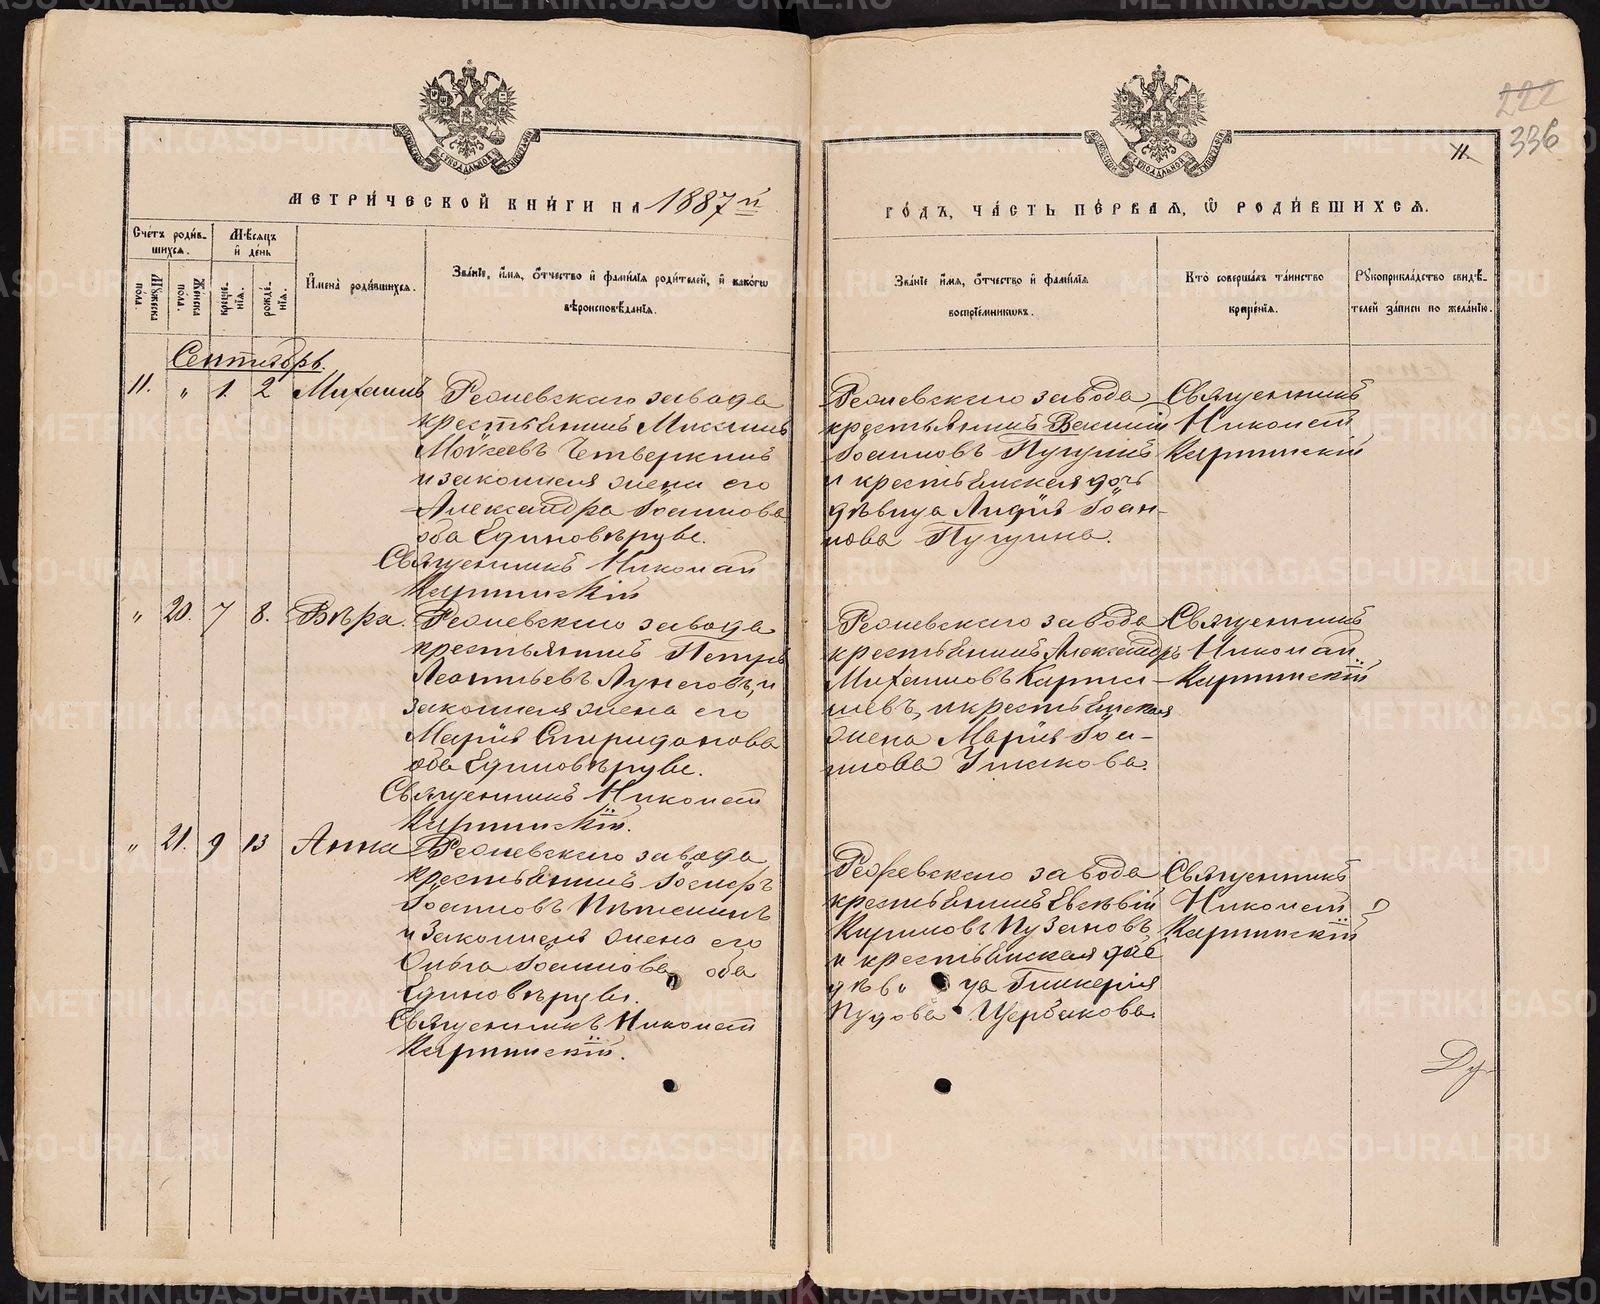 МЕТРИ́ЧЕСКОЙ КНИ́ГИ НА 1887й
ГО́ДЪ, ЧА́СТЬ ПЕ́РВАЯ, Ѽ РОДИ́ВШИХСЯ.
222
336
11.
Сче́тъ роди́в-
шихся.
Мѣсяцъ
и де́нь
Му́жеска
по́ла.
Же́нска
по́ла.
креще-
нія.
рожде́-
нія.
Имена̀ роди́вшихся.
Зва́ніе, и́мя, о́тчество и фами́лія роди́телей, и како́гѡ
вѣроисповѣ́данія.
Зва́ніе и́мя, о́тчество и фами́лія
воспріе́мникѡвъ.
Кто̀ соверша́лъ та́инство
креще́нія.
Рукоприкла́дство свидѣ́-
телей за́писи по жела́нію.
Сентябрь.
11. " 1. 2 Михаилъ
Режевскаго завода
крестьянинъ Максимъ
Моѵсеевъ Четверкинъ
и законная жена его
Александра Іоаннова
оба Единовѣрцы.
Священникъ Николай
Карпинскій
Режевскаго завода
крестьянинъ Василій
Іоанновъ Пугинъ
и крестьянская дочь
дѣвица Лидія Іоан-
нова Пугина.
Священникъ
Николай
Карпинскій
" 20. 7 8. Вѣра.
Режевскаго завода
крестьянинъ Петръ
Леонтьевъ Лунеговъ, и
законная жена его
Марія Спиридонова
оба Единовѣрцы.
Священникъ Николай
Карпинскій.
Режевскаго завода
крестьянинъ Александръ
Михаиловъ Карта-
шевъ, и крестьянская
жена Марія Іоан-
нова Ушакова.
Священникъ
Николай
Карпинскій
" 21. 9 13 Анна
Режевскаго завода
крестьянинъ Іосифъ
Іоанновъ
и Законная жена его
Ольга Іоаннова оба
Единовѣрцы.
Священникъ Николай
Карпинскій.
Режевскаго завода
крестьянинъ Евсевій
Кириловъ Пузановъ
и крестьянская
дѣвица Гликерія
Пудова Щербакова.
Священникъ
Николай
Карпинскій
Ду-